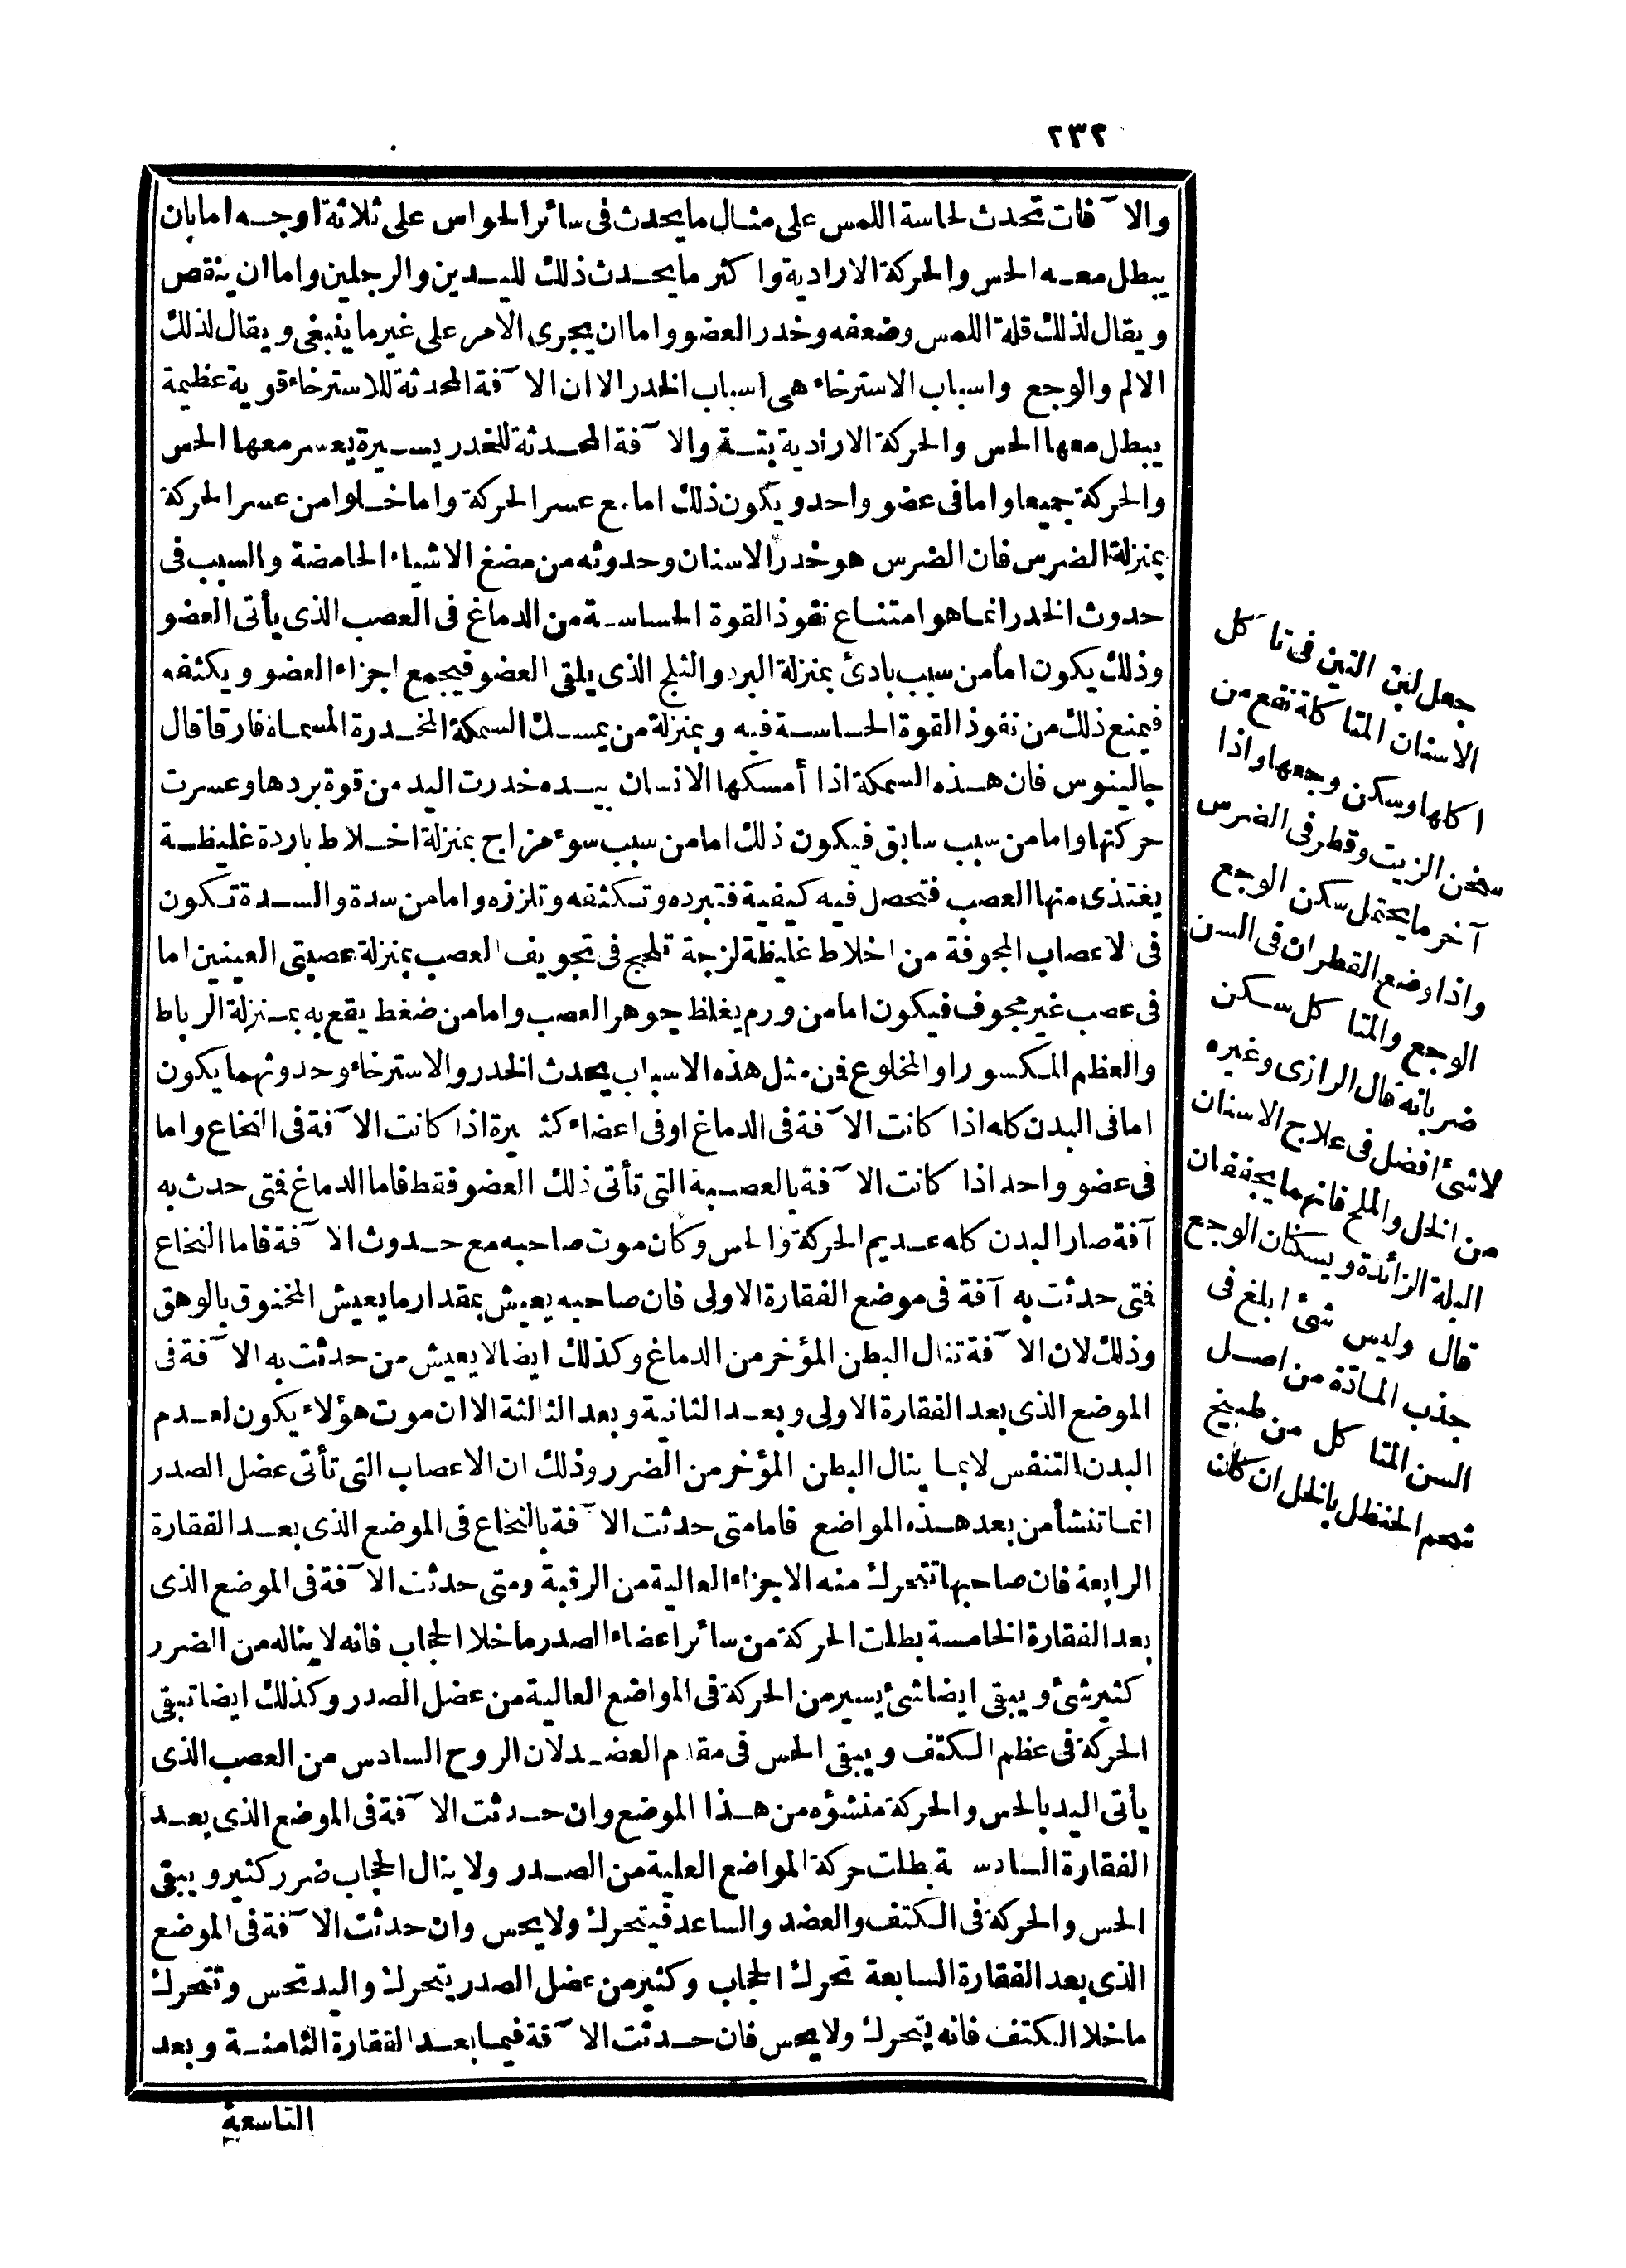 ٢٣٢
والآفات تحدث لحاسة اللمس على مثال ما يحدث فى سائر الحواس على ثلاثة اوجه اما بان
يبطل معه الحس والحركة الارادية واكثر ما يحدث ذلك لليدين والرجلين واما ان ينقص
ويقال لذلك قلة اللمس وضعفه وخدر العضو واما ان يجرى الامر على غير ما ينبغى ويقال لذلك
الالم والوجع واسباب الاسترخاء هى اسباب الخدر الا ان الآفة المحدثة للاسترخاء قوية عظيمة
يبطل معها الحس والحركة الارادية بتة والآفة المحدثة للخدر يسيرة يعسر معها الحس
والحركة جميعا واما فى عضو واحد ويكون ذلك اما مع عسر الحركة واما خلوا من عسر الحركة
بمنزلة الضرس فان الضرس هو خدر الاسنان وحدوثه من مضغ الاشياء الحامضة والسبب فى
حدوث الخدر انما هو امتناع نفوذ القوة الحساسة من الدماغ فى العصب الذى يأتى العضو
وذلك يكون اما من سبب بادئ بمنزلة البرد والثلج الذى يلقى العضو فيجمع اجزاء العضو ويكثفه
فيمنع ذلك من نفوذ القوة الحساسة فيه وبمنزلة من يمسك السمكة المخدرة المسماة فارقا قال
جالينوس فان هذه السمكة اذا أمسكها الانسان بيده خدرت اليد من قوة بردها وعسرت
حركتها واما من سبب سابق فيكون ذلك اما من سبب سوء مزاج بمنزلة اخلاط باردة غليظة
يغتذى منها العصب فتحصل فيه كيفية فتبرده وتكثفه وتلززه واما من سدة والسدة تكون
فى الاعصاب المجوفة من اخلاط غليظة لزجة تلحج فى تجويف العصب بمنزلة عصبتى العينين اما
فى عصب غير مجوف فيكون اما من ورم يغلظ جوهر العصب واما من ضغط يقع به بمنزلة الرباط
والعظم المكسور او المخلوع فمن مثل هذه الاسباب يحدث الخدر والاسترخاء وحدوثهما يكون
اما فى البدن كله اذا كانت الآفة فى الدماغ او فى اعضاء كثيرة اذا كانت الآفة فى النخاع واما
فى عضو واحد اذا كانت الآفة بالعصبة التى تأتى ذلك العضو فقط فاما الدماغ فمتى حدث به
آفة صار البدن كله عديم الحركة والحس وكان موت صاحبه مع حدوث الآفة فاما النخاع
فمتى حدثت به آفة فى موضع الفقارة الاولى فان صاحبه يعيش بمقدار ما يعيش المخنوق بالوهق
وذلك لان الآفة تنال البطن المؤخر من الدماغ وكذلك ايضا لا يعيش من حدثت به الآفة فى
الموضع الذى بعد الفقارة الاولى وبعد الثانية وبعد الثالثة الا ان موت هؤلاء يكون لعدم
البدن التنفس لا بما ينال البطن المؤخر من الضرر وذلك ان الاعصاب التى تأتى عضل الصدر
انما تنشأ من بعد هذه المواضع فاما متى حدثت الآفة بالنخاع فى الموضع الذى بعد الفقارة
الرابعة فان صاحبها تتحرك منه الاجزاء العالية من الرقبة ومتى حدثت الآفة فى الموضع الذى
بعد الفقارة الخامسة بطلت الحركة من سائر اعضاء الصدر ما خلا الحجاب فانه لا يناله من الضرر
كثير شئ ويبقى ايضا شئ يسير من الحركة فى المواضع العالية من عضل الصدر وكذلك ايضا تبقى
الحركة فى عظم الكتف ويبقى الحس فى مقدم العضد لان الروح السادس من العصب الذى
يأتى اليد بالحس والحركة منشؤه من هذا الموضع وان حدثت الآفة فى الموضع الذى بعد
الفقارة السادسة بطلت حركة المواضع العلية من الصدر ولا ينال الحجاب ضرر كثير ويبقى
الحس والحركة فى الكتف والعضد والساعد فيتحرك ولا يحس وان حدثت الآفة فى الموضع
الذى بعد الفقارة السابعة تحرك الحجاب وكثير من عضل الصدر يتحرك واليد تحس وتتحرك
ما خلا الكتف فانه يتحرك ولا يحس فان حدثت الآفة فيما بعد الفقارة الثامنة وبعد
التاسعة
جعل لبن التين فى تاكل
الاسنان المتاكلة نفع من
اكلها وسكن وجعها واذا
سخن الزيت وقطر فى الضرس
آخر ما يحتمل سكن الوجع
واذا وضع القطران فى السن
الوجع والمتاكل سكن
ضربانه قال الرازى وغيره
لا شئ افضل فى علاج الاسنان
من الخل والملح فانهما يجففان
البلة الزائدة ويسكنان الوجع
قال وليس شئ ابلغ فى
جذب المادّة من اصل
السن المتاكل من طبيخ
شحم الحنظل بالخل ان كان